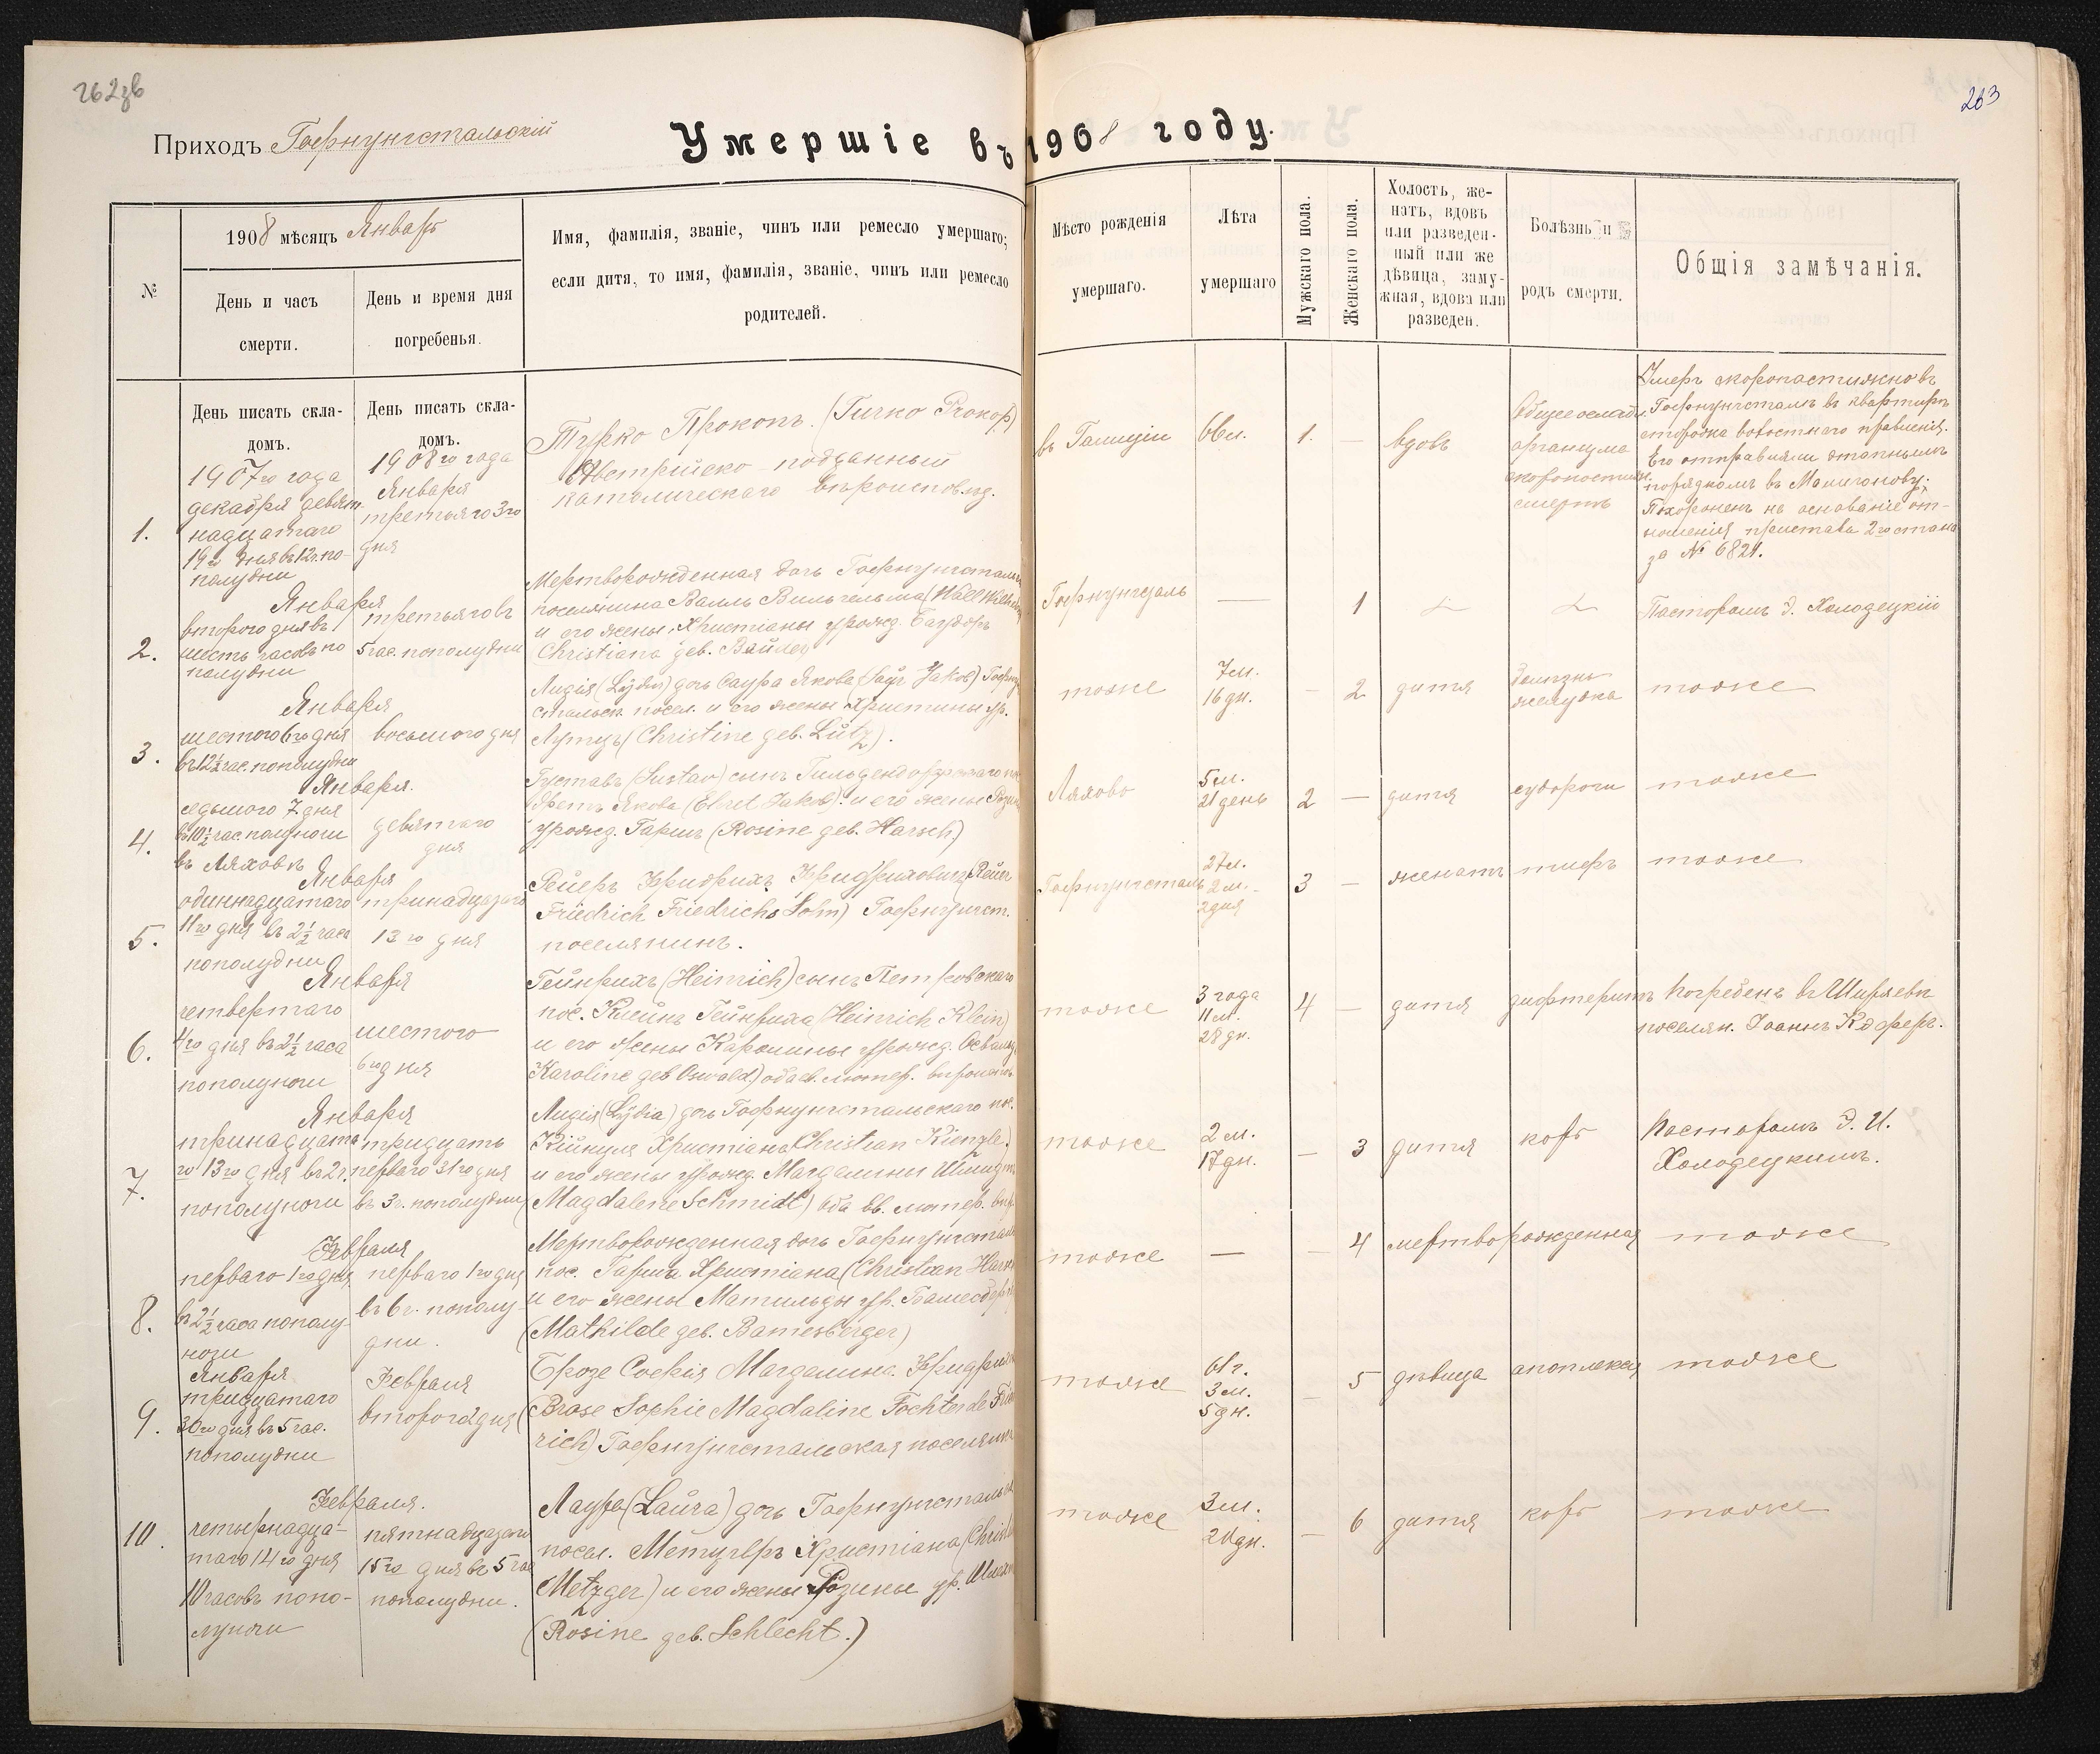 262зв
263
Приходъ Гофнунгстальскій
Умершіе въ 1908 году.
№
1908 мѣсяцъ Январь
День и часъ
смерти.
День и время дня
погребенья.
Имя, фамилія, званіе, чинъ или ремесло умершаго;
если дитя, то имя, фамилія, званіе, чинъ или ремесло
родителей.
Мѣсто рожденія
умершаго.
Лѣта
умершаго
Мужскаго пола.
Женскаго пола.
Холостъ, же-
натъ, вдовъ
или разведен-
ный или же
дѣвица, заму-
жная, вдова или
разведен.
Болѣзнь и
родъ смерти.
Общія замѣчанія.
День писать скла-
домъ.
День писать скла-
домъ.
1.
1907го года
декабря девят-
надцатаго
19го дня въ 12 ч. по-
полудни
1908го года
Января
третьяго 3го
дня
Турко Прокопъ. (Turko Prokop)
Австрійско-подданный
католическаго вѣроисповѣд.
въ Галиціи
66 л.
1.
—
вдовъ
Общее ослабл.
организма
скоропостижн.
смерть
Умеръ скоропостижно въ
Гофнунгсталѣ въ квартирѣ
сторожа волостного правленія.
Его отправляли этапнымъ
порядкомъ въ
Похороненъ на основаніи от-
ношенія пристава 2го стана
за № 6821.
2.
Января
второго дня въ
шесть часовъ по
полудни
третьяго въ
5 час. пополудни
Мертворожденная дочь Гофнунгстальск.
поселянина Валль Вильгельма (Wall Wilhelm
и его жены Христіаны урожд.
Christiana geb.
Гофнунгсталь
—
1
Пасторомъ Э. Холодецкій
3.
Января
шестого 6го дня
въ 12½ час. пополудни
восьмого дня
Лидія (Lydia) дочь Саура Якова (Saur Jakob) Гофнунг
стальск. посел. и его жены Христины ур.
Лутцъ (Christine geb. Lutz).
тоже
7 м.
16 дн.
—
2
дитя
болѣзнь
желудка
тоже
4.
Января.
седьмого 7. дня
въ 10½ час. полуночи
въ Ляховѣ
девятаго
дня
Густавъ (Gustav) сынъ Гильдендорфскаго по
Эретъ Якова (Ehret Jakob) и его жены Розин
урожд. Гаршъ (Rosine geb. Harsch)
Ляхово
5 м.
21 день
2
—
дитя
судороги
тоже
5.
Января
одиннадцатаго
11го дня въ 2½ часа
пополудни
тринадцатаго
13го дня
Рейеръ Фридрихъ Фридриховичъ (Reuer
Friedrich Friedrichs Sohn) Гофнунгст.
поселянинъ.
Гофнунгсталь
27 л.
2 м.
2 дня
3
—
женатъ
тоже
6.
Января
четвертаго
4го дня въ 2½ часа
пополуночи
шестого
6го дня
Гейнрихъ (Heinrich) сынъ Петровскаго
пос. Клейнъ Гейнриха (Heinrich Klein)
и его жены Каролины урожд. Освальд
Karoline geb. Oswald) оба ев. лютер. вѣроиспов.
тоже
3 года
11 м.
28 дн.
4
—
дитя
дифтеритъ
Погребенъ въ Ширяевѣ
поселян. Іоаннъ
7.
Января
тринадцата-
го 13го дня въ 2 ч.
пополуночи
тридцать
перваго 31го дня
въ 3 ч. пополудни
Лидія (Lydia) дочь Гофнунгстальскаго пос.
Кинцля Христіана (Christian Kienzle)
и его жены урожд. Магдалины Шмидтъ
Magdalene Schmidt) оба ев. лютер. вѣр.
тоже
2 м.
17 дн.
—
3
дитя
корь
Пасторомъ Э. И.
Холодецкимъ.
8.
Февраля
перваго 1го дня
въ 2½ часа пополу-
ночи
перваго 1го дня
въ 6 ч. пополу-
дни.
Мертворожденная дочь Гофнунгсталь
пос. Гарша Христіана (Christian Harsch
и его жены Матильды ур.
(Mathilde geb. Bamesberger)
тоже
—
4
мертворожденная
тоже
9.
Января
тридцатаго
30го дня въ 5 час.
пополудни
Февраля
второго дня
Брозе Софія Магдалина Фридрих
(Brose Sophie Magdaline Tochter de Fried
rich) Гофнунгстальская поселянка
тоже
61 г.
3 м.
5 дн.
—
5
дѣвица
апоплексія
тоже
10.
Февраля.
четырнадца-
таго 14го дня
10 часовъ попо-
луночи
пятнадцатаго
15го дня въ 5 час
пополудни.
Лаура (Laura) дочь Гофнунгстальск
посел. Метцгеръ Христіана (Christ
Metzger) и его жены Розины ур. Шлехт
(Rosine geb. Schlecht.)
тоже
3 м.
20 дн.
—
6
дитя
корь
тоже